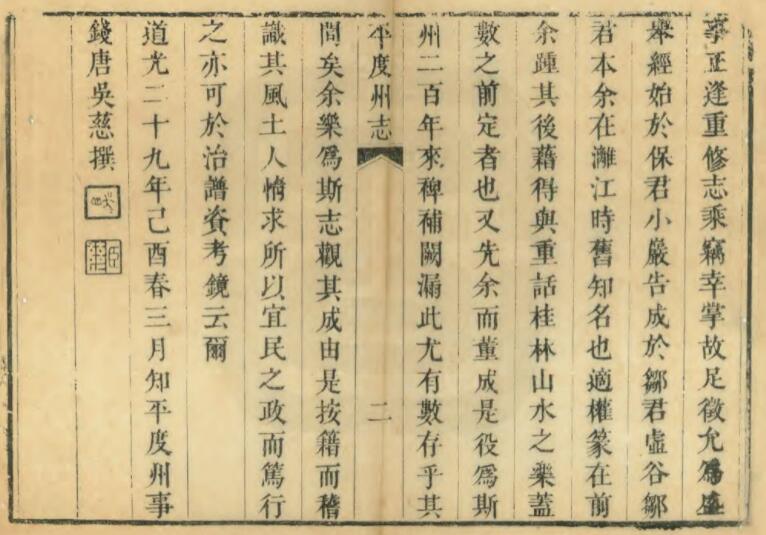 事正逢重修志乘竊幸掌故足徵允爲盛
舉經始於保君小嚴告成於鄒君虛谷鄒
君本余在灕江時舊知名也適權篆在前
余踵其後藉得與重話桂林山水之樂蓋
數之前定者也又先余而董成是役爲斯
州二百年來稗補闕漏此尤有數存乎其
平度州志 二
間矣余樂爲斯志觀其成由是按籍而稽
識其風土人情求所以宜民之政而篤行
之亦可於治譜資考鏡云爾
道光二十九年己酉春三月知平度州事
錢唐吳慈撰